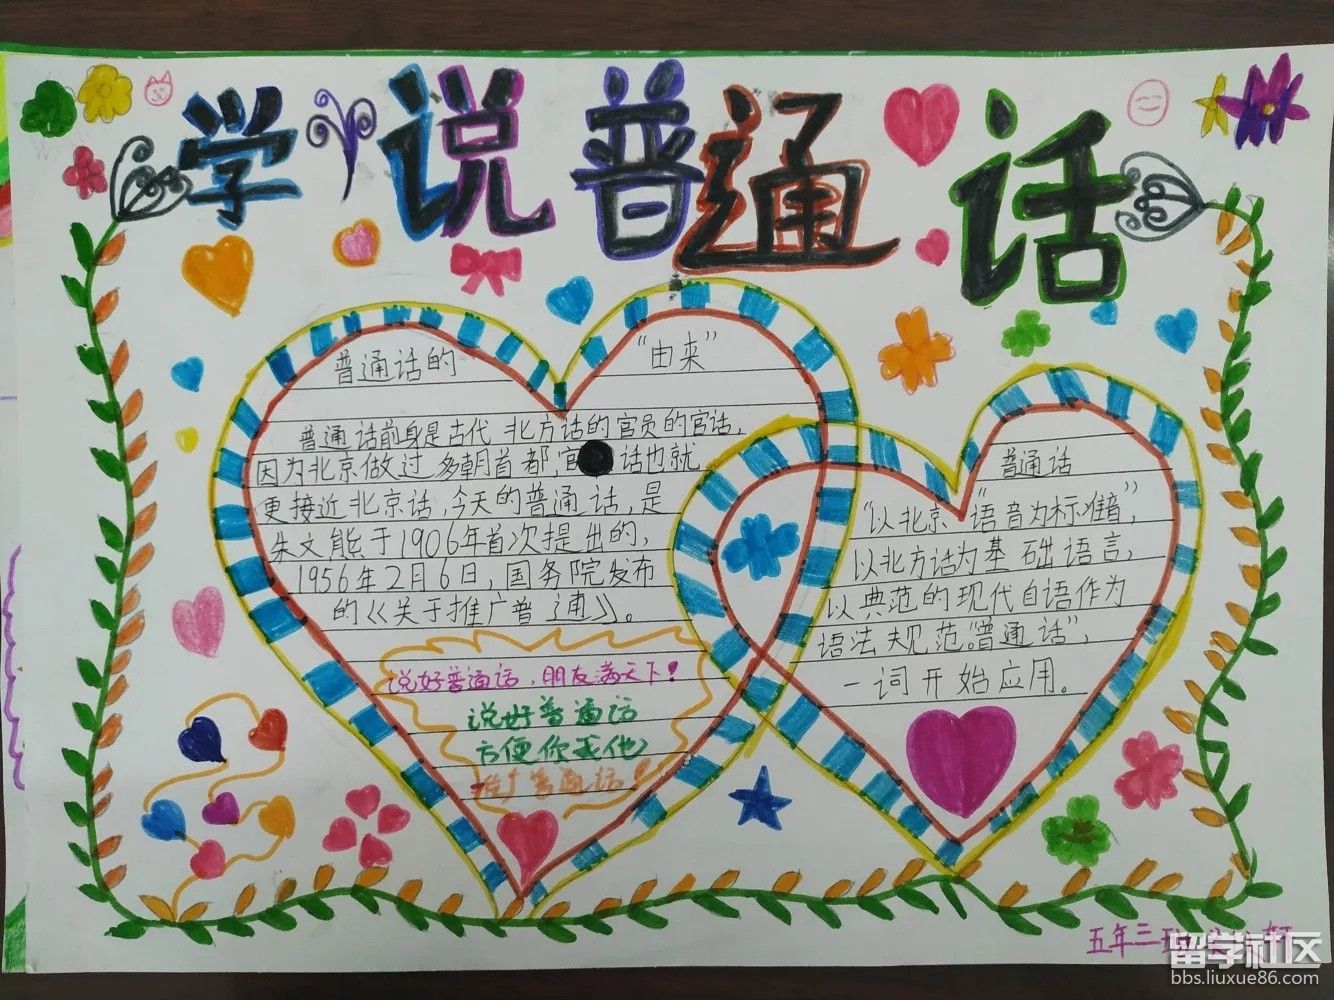 学说普通话
普通话的 “由来”
普通话前身是古代北方话的官员的官话，
因为北京做过多朝首都，官 话也就
更接近北京话，今天的普通话，是
朱文熊于1906年首次提出的，
1956年2月6日，国务院发布
的《关于推广普通》。
说好普通话，朋友满天下！
说好普通话
方便你我他
推广普通话！
普通话
“以北京“语音为标准音”，
以北方话为基础语言，
以典范的现代白语作为
语法规范。“普通话”，
一词开始应用。
五年三班
留学社区
bbs.liuxue86.com